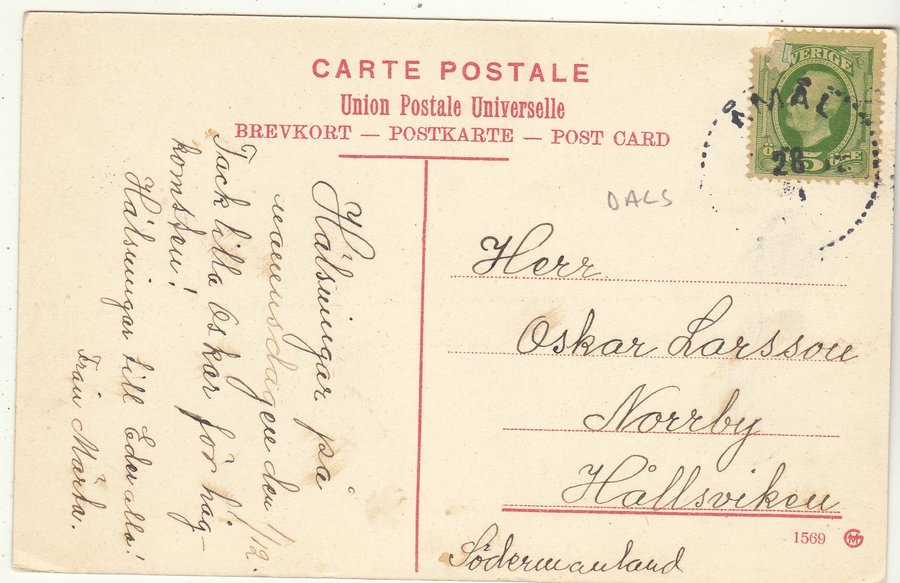 CARTE POSTALE
Union Postale Universelle
BREVKORT — POSTKARTE — POST CARD
SVERIGE
ÅMÅL
28
5
DALS
Hälsningar på
namnsdagen den 1/12.
Tack lilla Oskar för håg-
komsten!
Hälsningar till Eder alla!
från Märta.
Herr
Oskar Larsson
Norrby
Hållsviken
Södermanland
1569